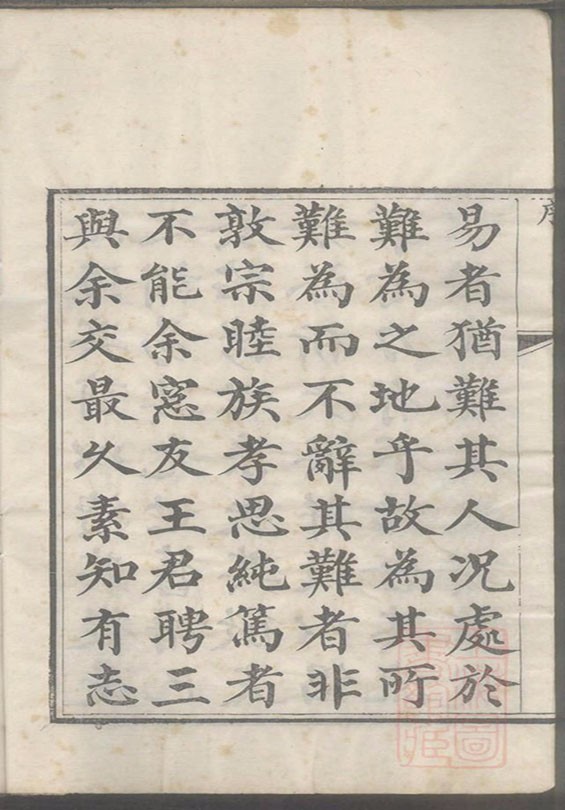 序
易者猶難其人况處於
難為之地乎故為其所
難為而不辭其難者非
敦宗睦族孝思純篤者
不能余窓友王君聘三
與余交最久素知有志